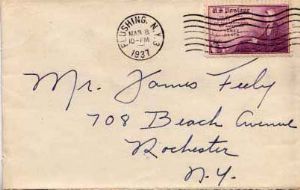 FLUSHING, N.Y. 3
MAR 8
10-PM
1937
U.S. Postage
Mr. James Feely
708 Beach Avenue
Rochester
N.Y.